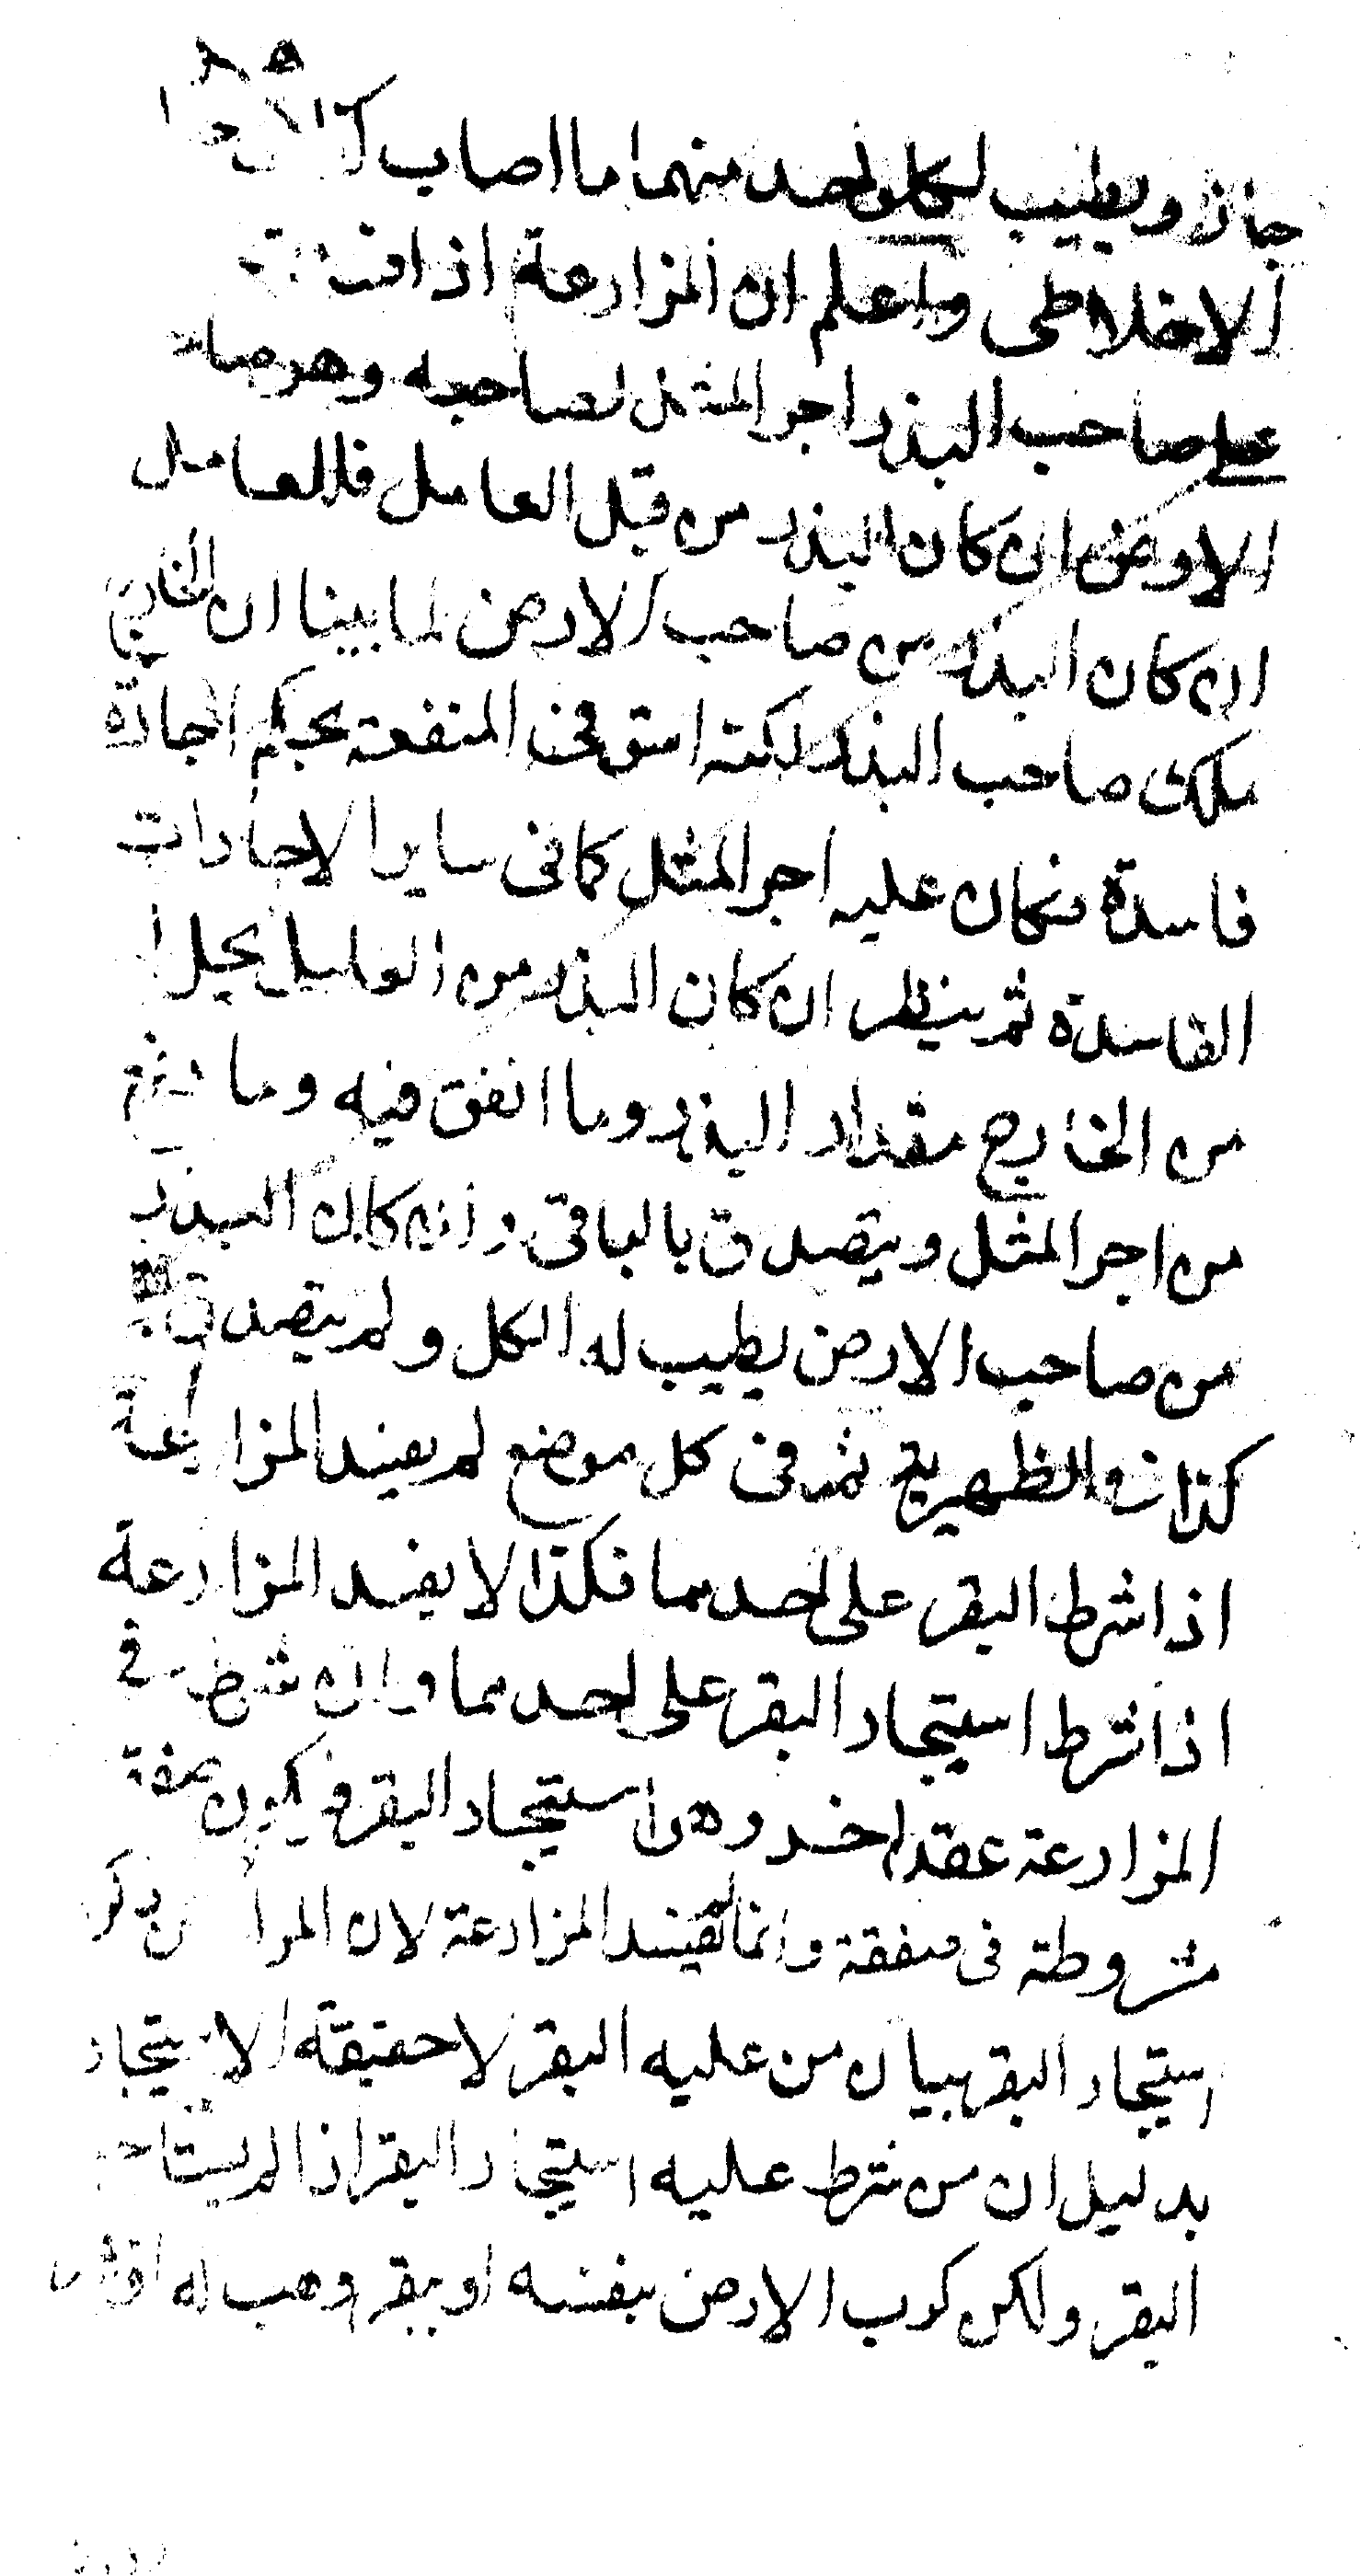 جاز ويطيب لكل واحد منهما ما اصاب كذا
الاخلاطى واعلم ان المزارعة اذا
على صاحب البذر اجر المثل لصاحبه وهو صاحب
الارض ان كان البذر من قبل العامل فللعامل
ان كان البذر من صاحب الارض لما بينا ان الخارج
ملك صاحب البذر لكنه استوفى المنفعة بحكم اجارة
فاسدة فكان عليه اجر المثل كما فى ساير الاجارات
الفاسدة ثم ينظر ان كان البذر من العامل يحل
من الخارج مقدار البذر وما انفق فيه وما غرم
من اجر المثل ويتصدق بالباقى وان كان البذر
من صاحب الارض يطيب له الكل ولم يتصدق
كذا فى الظهيرية ثم فى كل موضع لم يفسد المزارعة
اذا شرط البقر على احدهما فكذا لا يفسد المزارعة
اذا شرط استيجار البقر على احدهما وان شرط فى
المزارعة عقد اخر وهو استيجار البقر فيكون صفقة
مشروطة فى صفقة وانما لم يفسد المزارعة لان المراد من ذكر
استيجار البقر بيان من عليه البقر لا حقيقة الاستيجار
بدليل ان من شرط عليه استيجار البقر اذا لم يستاجر
البقر ولكن كرب الارض بنفسه او ببقر وهب له او